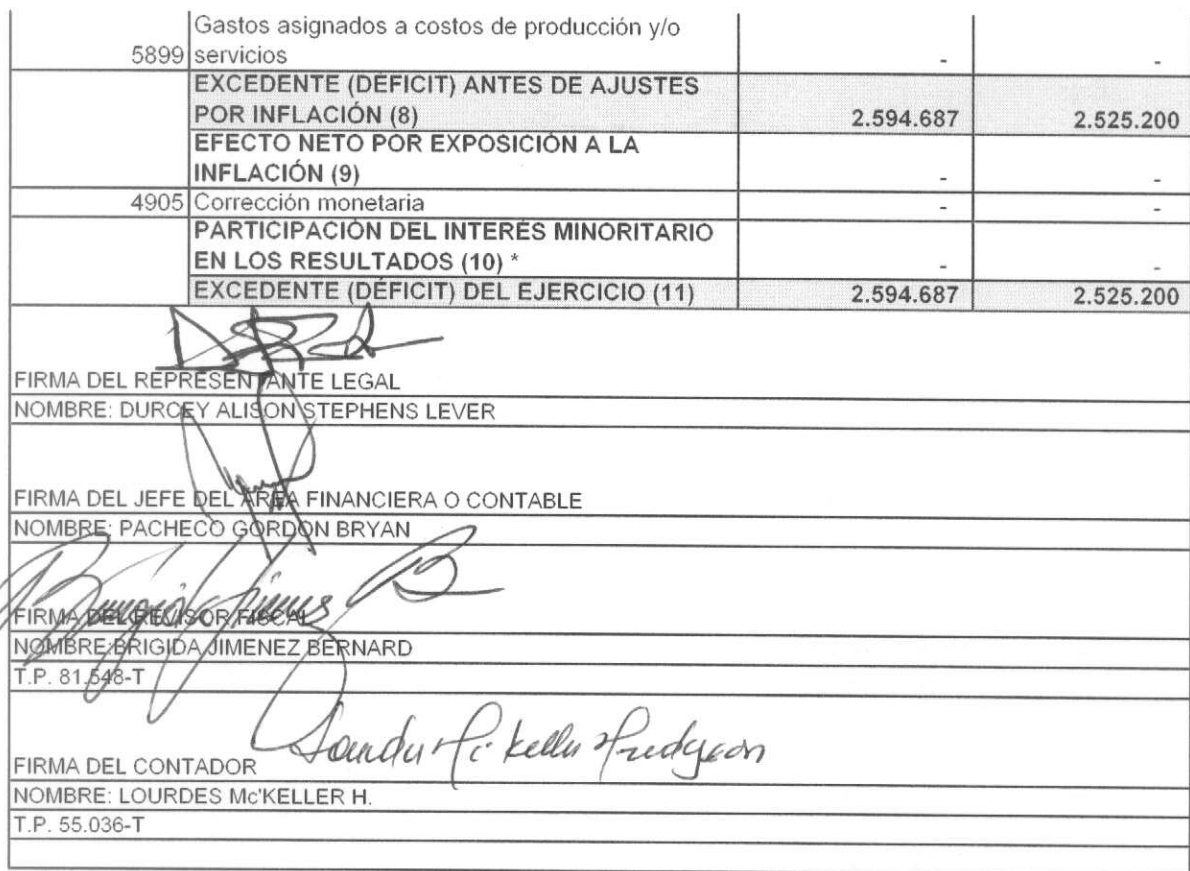 Gastos asignados a costos de producción y/o
5899 servicios - -
EXCEDENTE (DÉFICIT) ANTES DE AJUSTES
POR INFLACIÓN (8) 2.594.687 2.525.200
EFECTO NETO POR EXPOSICIÓN A LA
INFLACIÓN (9) - -
4905 Corrección monetaria - -
PARTICIPACIÓN DEL INTERÉS MINORITARIO
EN LOS RESULTADOS (10) * - -
EXCEDENTE (DÉFICIT) DEL EJERCICIO (11) 2.594.687 2.525.200
FIRMA DEL REPRESENTANTE LEGAL
NOMBRE: DURCEY ALISON STEPHENS LEVER
FIRMA DEL JEFE DEL ÁREA FINANCIERA O CONTABLE
NOMBRE: PACHECO GORDON BRYAN
FIRMA DEL REVISOR FISCAL
NOMBRE:BRIGIDA JIMENEZ BERNARD
T.P. 81.548-T
FIRMA DEL CONTADOR
NOMBRE: LOURDES Mc'KELLER H.
T.P. 55.036-T